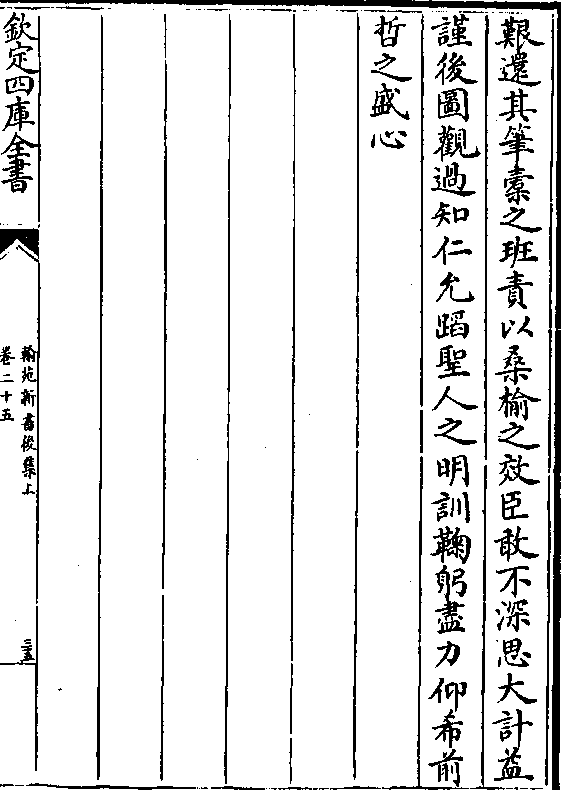 艱還其筆橐之班責以桑榆之效臣敢不深思大計益
謹後圖觀過知仁允蹈聖人之明訓鞠躬盡力仰希前
哲之盛心
欽定四庫全書
翰苑新書後集上
卷二十五
三五